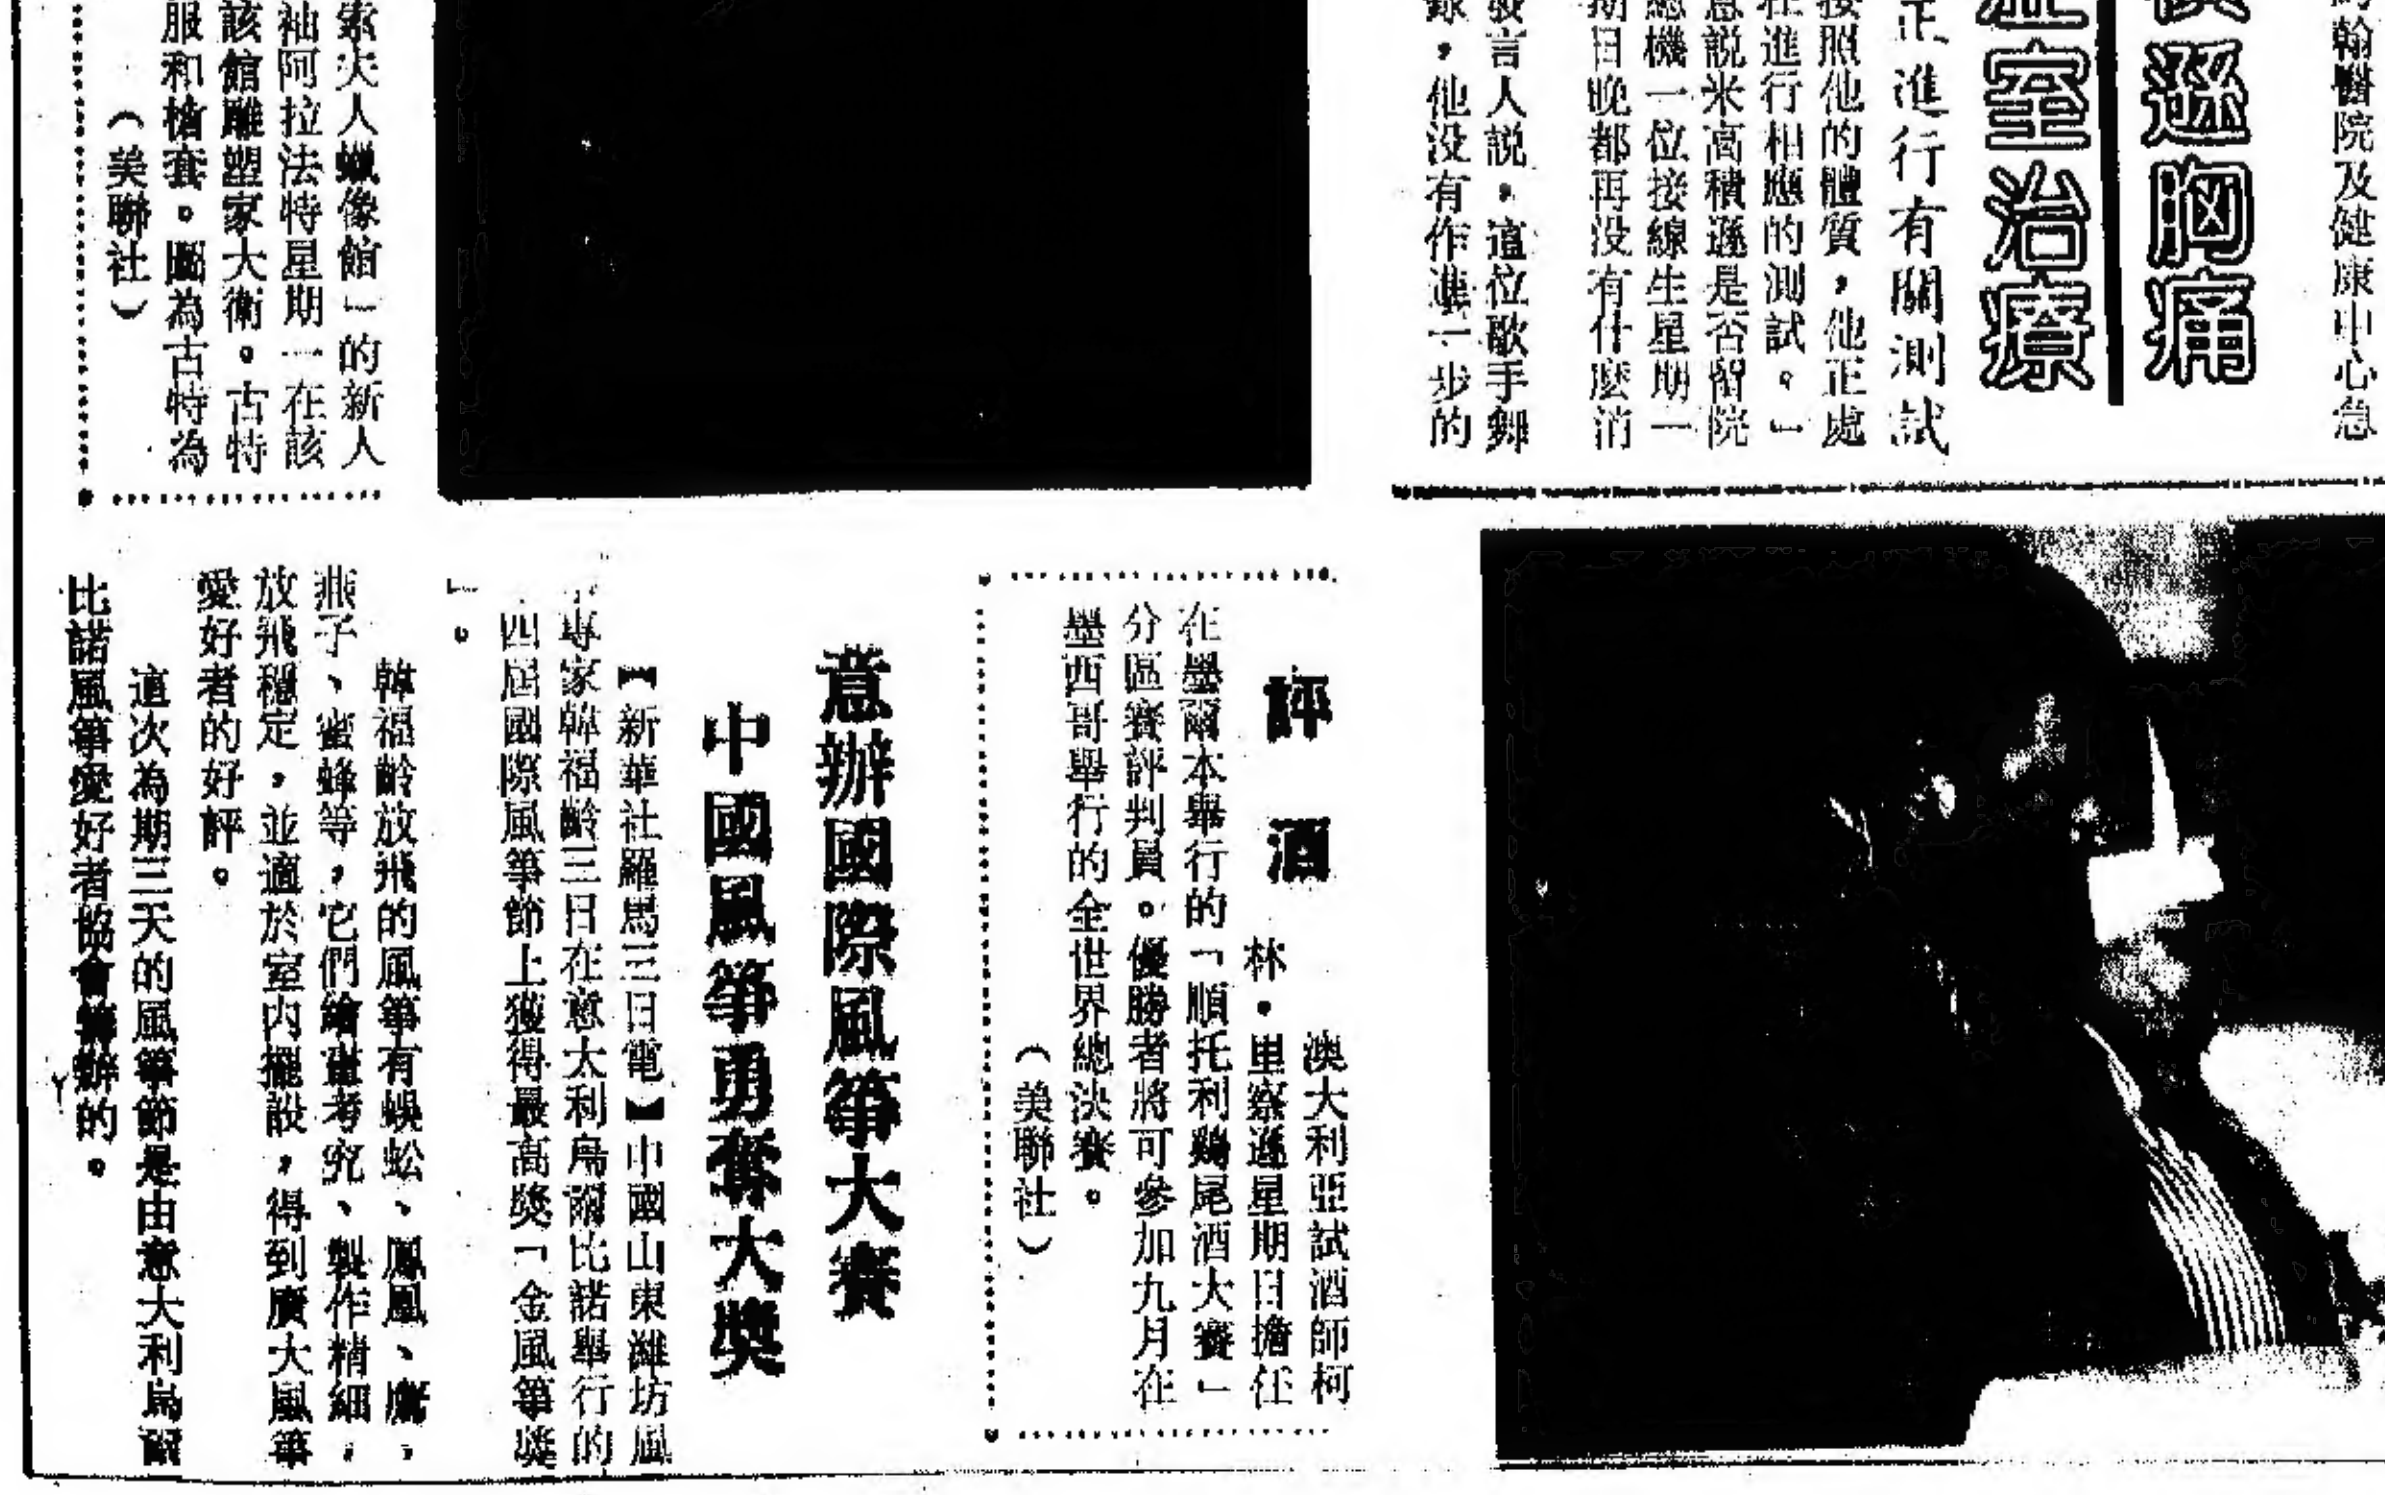 翰醫院及健康中心急
遜胸痛
室治療
正進行有關測試
按照他的體質,他正處
在進行相應的測試。」
息説米高積遜是否留院
總機一位接線生星期一
期日晚都再没有什麼消
發言人説,這位歌手舞
錄,他没有作進一步的
索夫人蠟像館」的新人
袖阿拉法特星期一在該
該館雕塑家大衛。古特
服和槍套。圖為古特為
(美聯社)
評酒
澳大利亞試酒師柯
林·里察遜星期日擔任
在墨爾本舉行的「順托利鷄尾酒大賽」
分區賽評判員。優勝者將可參加九月在
墨西哥舉行的全世界總決賽。
(美聯社)
意辦國際風箏大賽
中國風箏勇奪大獎
【新華社羅馬三日電】中國山東濰坊風
專家韓福齡三日在意大利烏爾比諾舉行的
四屆國際風箏節上獲得最高獎「金風箏獎
」。
韓福齡放飛的風箏有蜈蚣、鳳凰、鷹,
燕子、蜜蜂等,它們繪畫考究、製作精細,
放飛穩定,並適於室內擺設,得到廣大風箏
愛好者的好評。
這次為期三天的風箏節是由意大利烏爾
比諾風箏愛好者協會籌辦的。